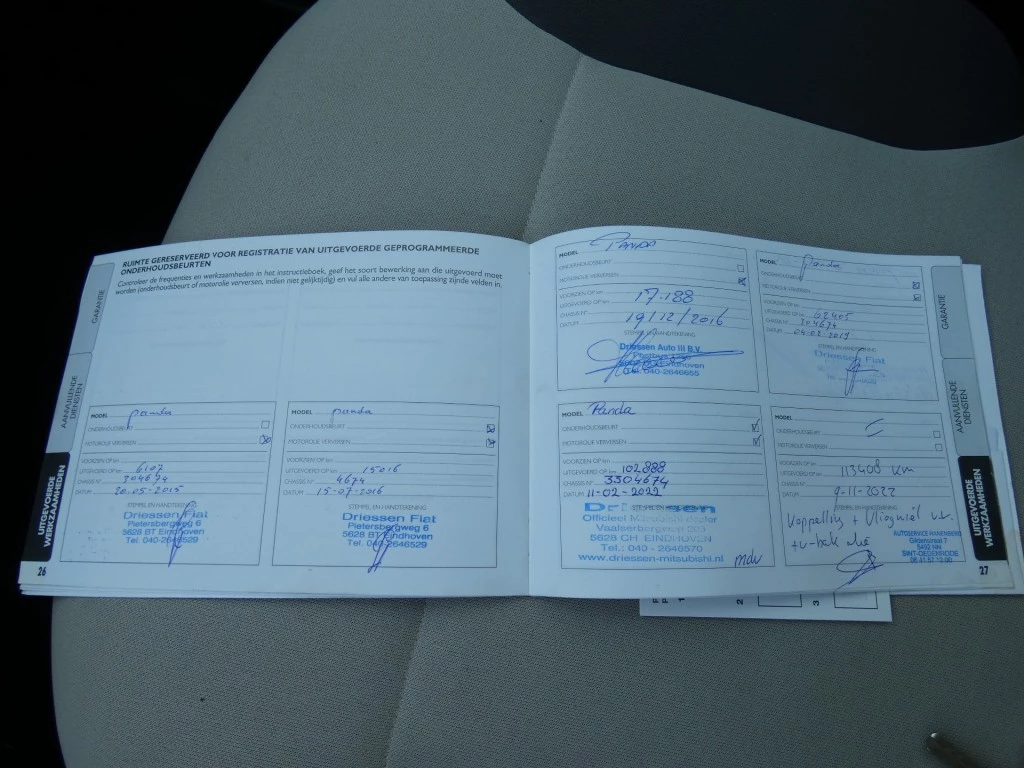 RUIMTE GERESERVEERD VOOR REGISTRATIE VAN UITGEVOERDE GEPROGRAMMEERDE
ONDERHOUDSBEURTEN
Controleer de frequenties en werkzaamheden in het instructieboek, geef het soort bewerking aan die uitgevoerd moet
worden (onderhoudsbeurt of motorolie verversen, indien niet gelijktijdig) en vul alle andere van toepassing zijnde velden in.
GARANTIE
AANVULLENDE
DIENSTEN
UITGEVOERDE
WERKZAAMHEDEN
26
MODEL panda
ONDERHOUDSBEURT
MOTOROLIE VERVERSEN
VOORZIEN OP km
UITGEVOERD OP km 6107
CHASSIS N° 304674
DATUM 20-05-2015
STEMPEL EN HANDTEKENING
Driessen Fiat
Pietersbergweg 6
5628 BT Eindhoven
Tel. 040-2646529
MODEL panda
ONDERHOUDSBEURT
MOTOROLIE VERVERSEN
VOORZIEN OP km
UITGEVOERD OP km 15016
CHASSIS N° 4674
DATUM 15-07-2016
STEMPEL EN HANDTEKENING
Driessen Fiat
Pietersbergweg 6
5628 BT Eindhoven
Tel. 040-2646529
MODEL PANDA
ONDERHOUDSBEURT
MOTOROLIE VERVERSEN
VOORZIEN OP km
UITGEVOERD OP km 17.188
CHASSIS N°
DATUM 19/12/2016
STEMPEL EN HANDTEKENING
Driessen Auto III B.V.
Eindhoven
Tel. 040-2646655
MODEL panda
ONDERHOUDSBEURT
MOTOROLIE VERVERSEN
VOORZIEN OP km
UITGEVOERD OP km 62405
CHASSIS N° 304674
DATUM 04-02-2019
STEMPEL EN HANDTEKENING
Driessen Fiat
MODEL Panda
ONDERHOUDSBEURT
MOTOROLIE VERVERSEN
VOORZIEN OP km
UITGEVOERD OP km 102888
CHASSIS N° 3304674
DATUM 11-02-2022
STEMPEL EN HANDTEKENING
Driessen
Officieel Mitsubishi dealer
5628 CH EINDHOVEN
Tel.: 040 - 2646570
www.driessen-mitsubishi.nl
mdv
MODEL
ONDERHOUDSBEURT
MOTOROLIE VERVERSEN
VOORZIEN OP km
UITGEVOERD OP km 113408 km
CHASSIS N°
DATUM 9-11-2022
STEMPEL EN HANDTEKENING
Koppeling + Vliegwiel v.v.
AUTOSERVICE
5492 NN
SINT-OEDENRODE
GARANTIE
AANVULLENDE
DIENSTEN
UITGEVOERDE
WERKZAAMHEDEN
27
2
3